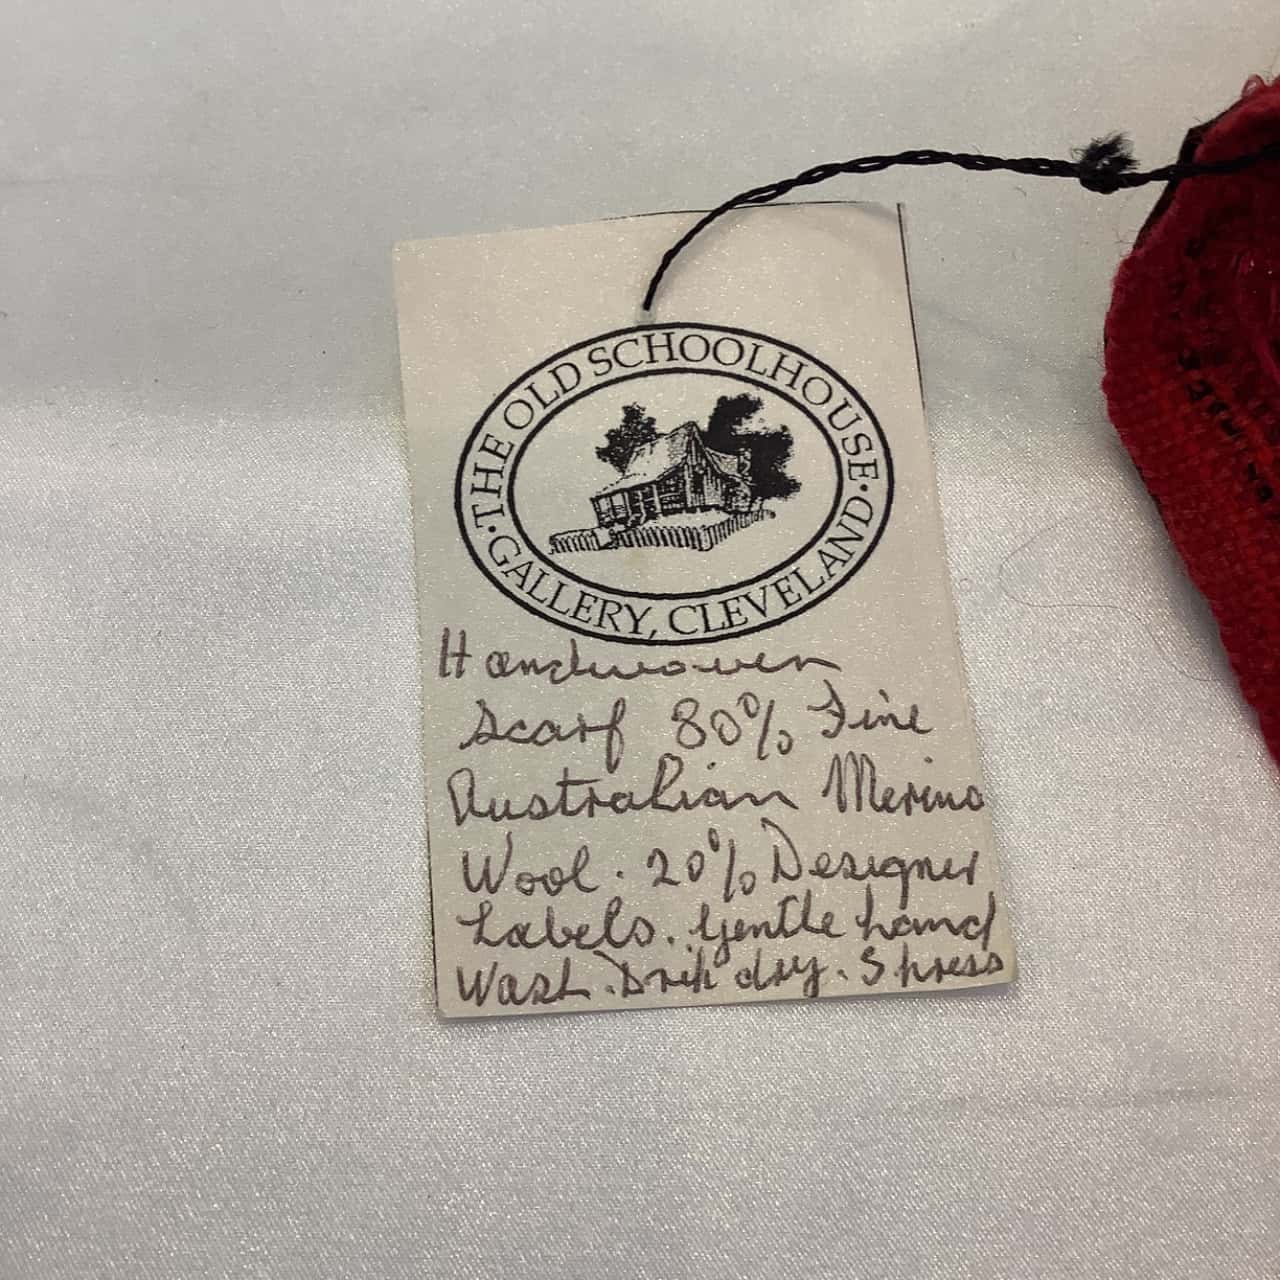 THE OLD SCHOOLHOUSE
GALLERY, CLEVELAND
Handwoven
Scarf 80% Fine
Australian Merino
Wool. 20% Designer
Labels. Gentle hand
Wash. Drip dry. S press